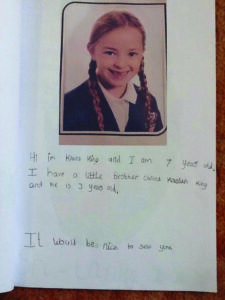 Hi im King and I am 7 years old.
I have a little brother called King
and he is 3 years old.
It would be nice to see you